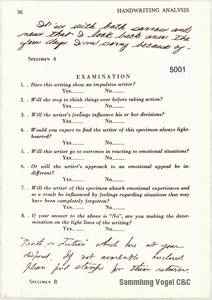 36 HANDWRITING ANALYSIS
It is with both sorrow and
now that I look back over the
few days I'm sorry because of-
SPECIMEN A
5001
EXAMINATION
1. . Does this writing show an impulsive writer?
Yes...... No......
2. . Will the writer stop to think things over before taking action?
Yes...... No......
3. . Will the writer's feelings influence his or her decisions?
Yes...... No......
4. . Would you expect to find the writer of this specimen always light-
hearted?
Yes...... No......
5. . Will this writer go to extremes in reacting to emotional situations?
Yes...... No......
6. . Or will the writer's approach to an emotional appeal be in-
different?
Yes...... No......
7. . Will the writer of this specimen absorb emotional experiences and
as a result be influenced by feelings regarding situations that may
have been completely forgotten?
Yes...... No......
8. . If your answer to the above is "No", are you making the deter-
mination on the light lines in this specimen?
Yes...... No......
which are at your
If not available
Please find stamps for their return
SPECIMEN B
Sammlung Vogel C&C